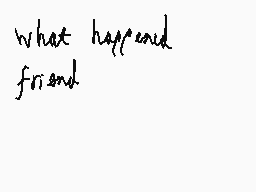 what happened
friend